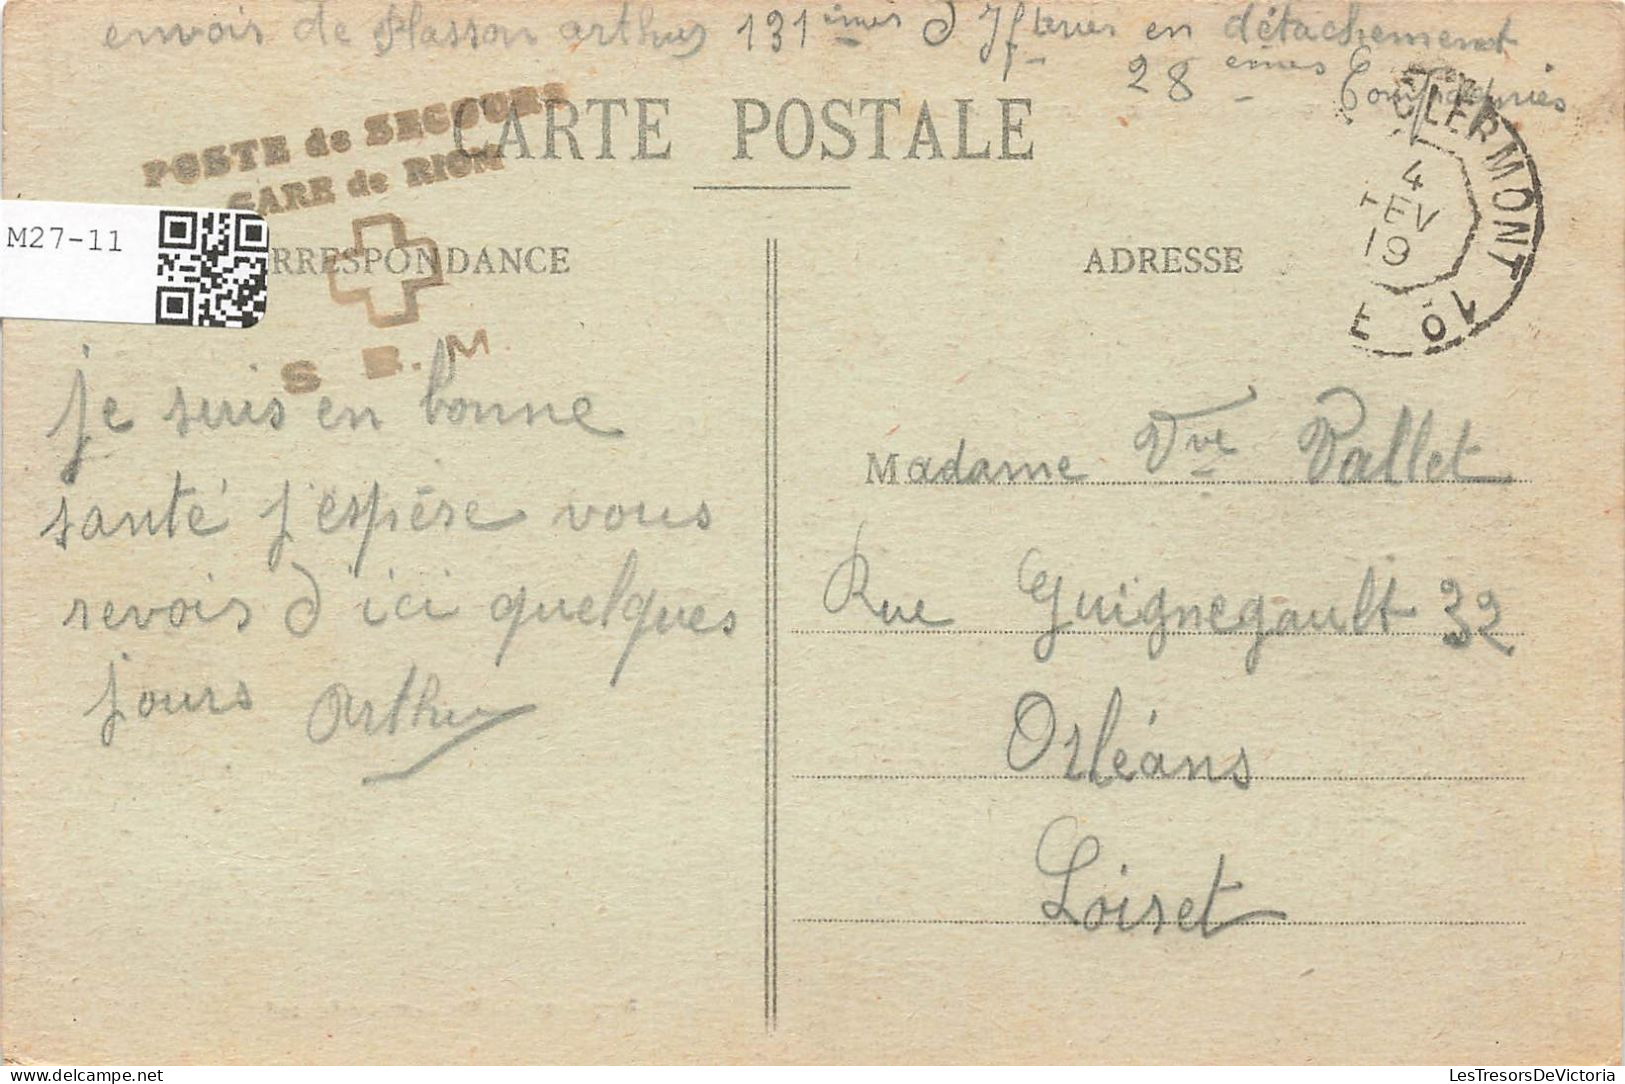 envoi de Plasson arthur 131 èmes d'Ifterier en détachement
28 èmes Compagnies
CARTE POSTALE
POSTE de SECOURS
GARE de RIOM
S B. M.
M27-11
RRESPONDANCE
ADRESSE
CLERMONT
4
FEV
19
E
je suis en bonne
santé j'espère vous
revois d'ici quelques
jours Arthur
Madame Vve Pallet
Rue Guignegault 32
Orléans
Loiret
LesTresorsDeVictoria